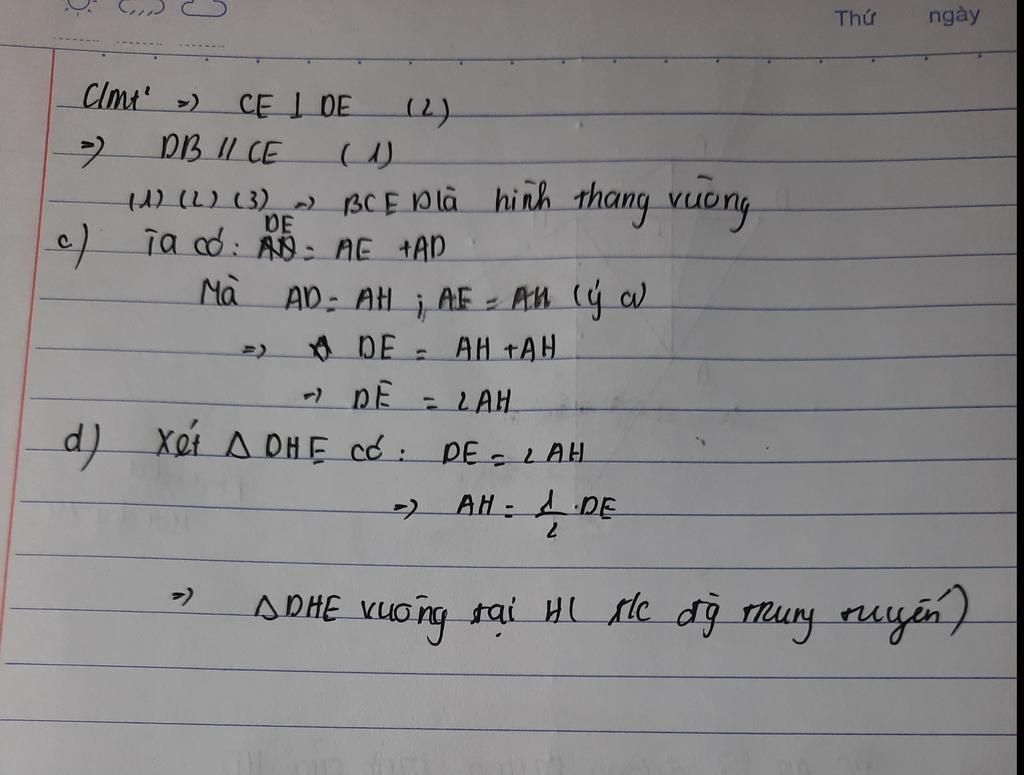 Thứ ngày
Cmt' => CE ⊥ DE (2)
=> DB // CE (1)
(1) (2) (3) => BCED là hình thang vuông
c) Ta có: DE = AE + AD
Mà AD = AH ; AE = AH (ý a)
=> DE = AH + AH
=> DE = 2AH
d) Xét Δ DHE có : DE = 2 AH
=> AH = 1/2 . DE
=> Δ DHE vuông tại H ( t/c đg trung tuyến )